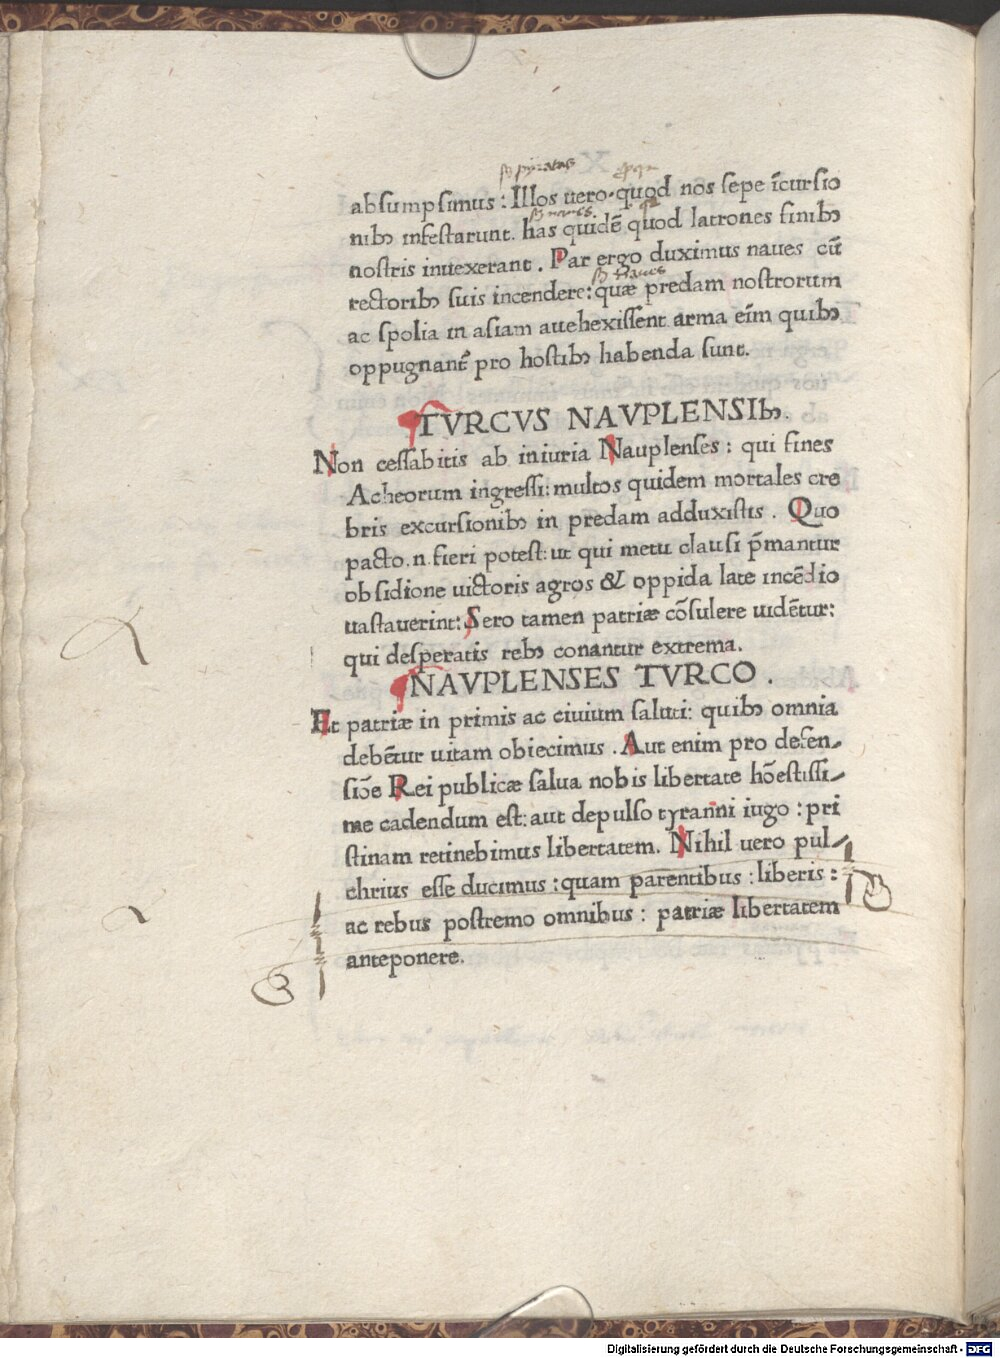 absumpsimus : Illos uero quod nos sepe īcursio
nibꝫ infestarunt. has quidē quod latrones finibꝫ
nostris inuexerant . Par ergo duximus naues cū
rectoribꝫ suis incendere: quæ predam nostrorum
ac spolia in asiam auehexissent arma eīm quibꝫ
oppugnant᷒ pro hostibꝫ habenda sunt.
TVRCVS NAVPLENSIbꝫ.
Non cessabitis ab iniuria Nauplenses : qui fines
Acheorum ingressi: multos quidem mortales cre
bris excursionibꝫ in predam adduxistis . Quo
pacto .n. fieri potest: ut qui metu clausi p̄mantur
obsidione uictoris agros & oppida late incēdio
uastauerint: Sero tamen patriæ cōsulere uidētur:
qui desperatis rebꝫ conantur extrema.
NAVPLENSES TVRCO .
Et patriæ in primis ac ciuium saluti: quibꝫ omnia
debētur uitam obiecimus . Aut enim pro defen-
siōe Rei publicæ salua nobis libertate hōestissi-
me cadendum est: aut depulso tyranni iugo : pri
stinam retinebimus libertatem. Nihil uero pul-
chrius esse ducimus : quam parentibus : liberis :
ac rebus postremo omnibus : patriæ libertatem
anteponere.
Digitalisierung gefördert durch die Deutsche Forschungsgemeinschaft - DFG